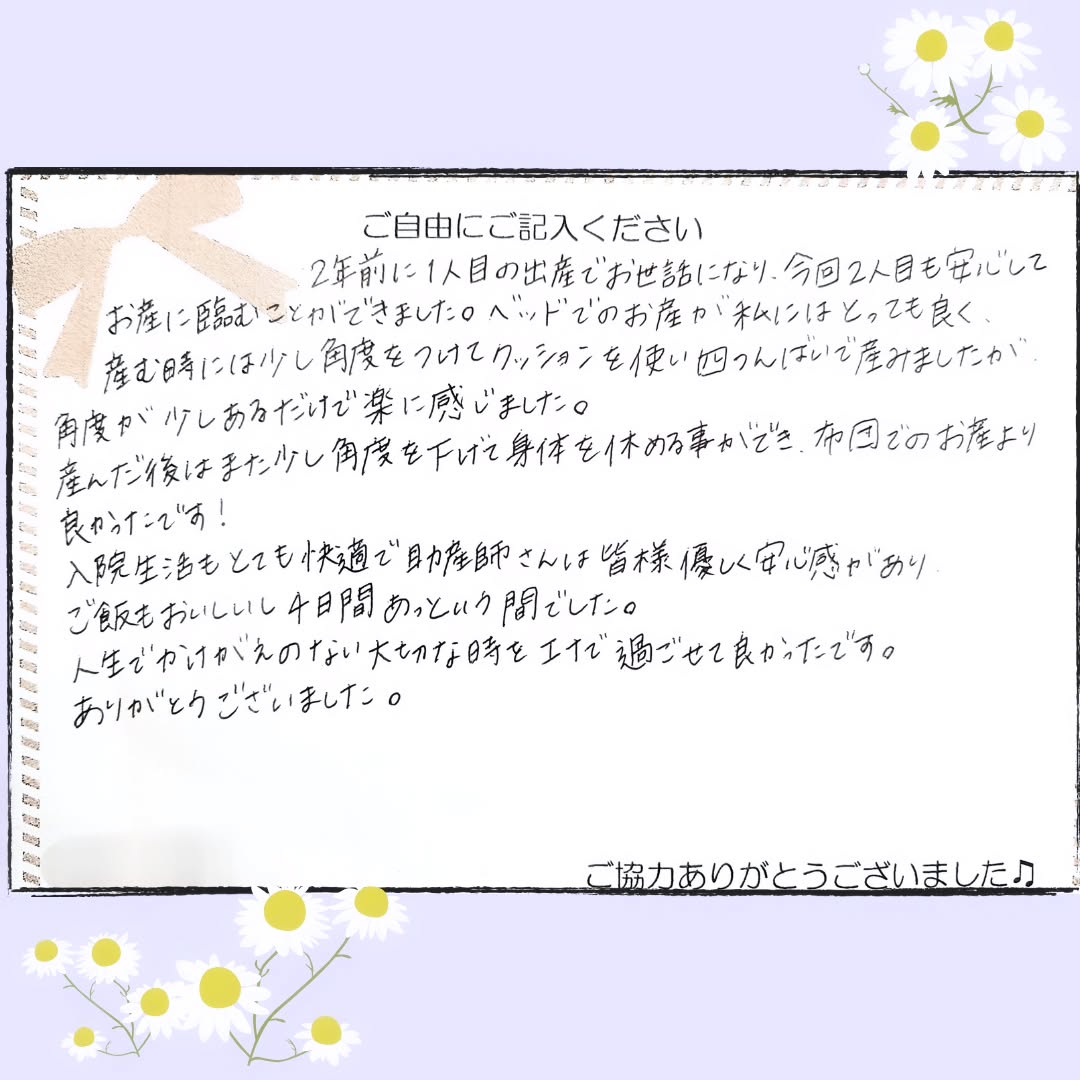 ご自由にご記入ください
2年前に1人目の出産でお世話になり、今回2人目も安心して
お産に臨むことができました。ベッドでのお産が私にはとっても良く、
産む時には少し角度をつけてクッションを使い四つんばいで産みましたが、
角度が少しあるだけで楽に感じました。
産んだ後はまた少し角度を下げて身体を休める事ができ、布団でのお産より
良かったです!
入院生活もとても快適で助産師さんは皆様優しく安心感があり、
ご飯もおいしいし4日間あっという間でした。
人生でかけがえのない大切な時をエナで過ごせて良かったです。
ありがとうございました。
ご協力ありがとうございました♫